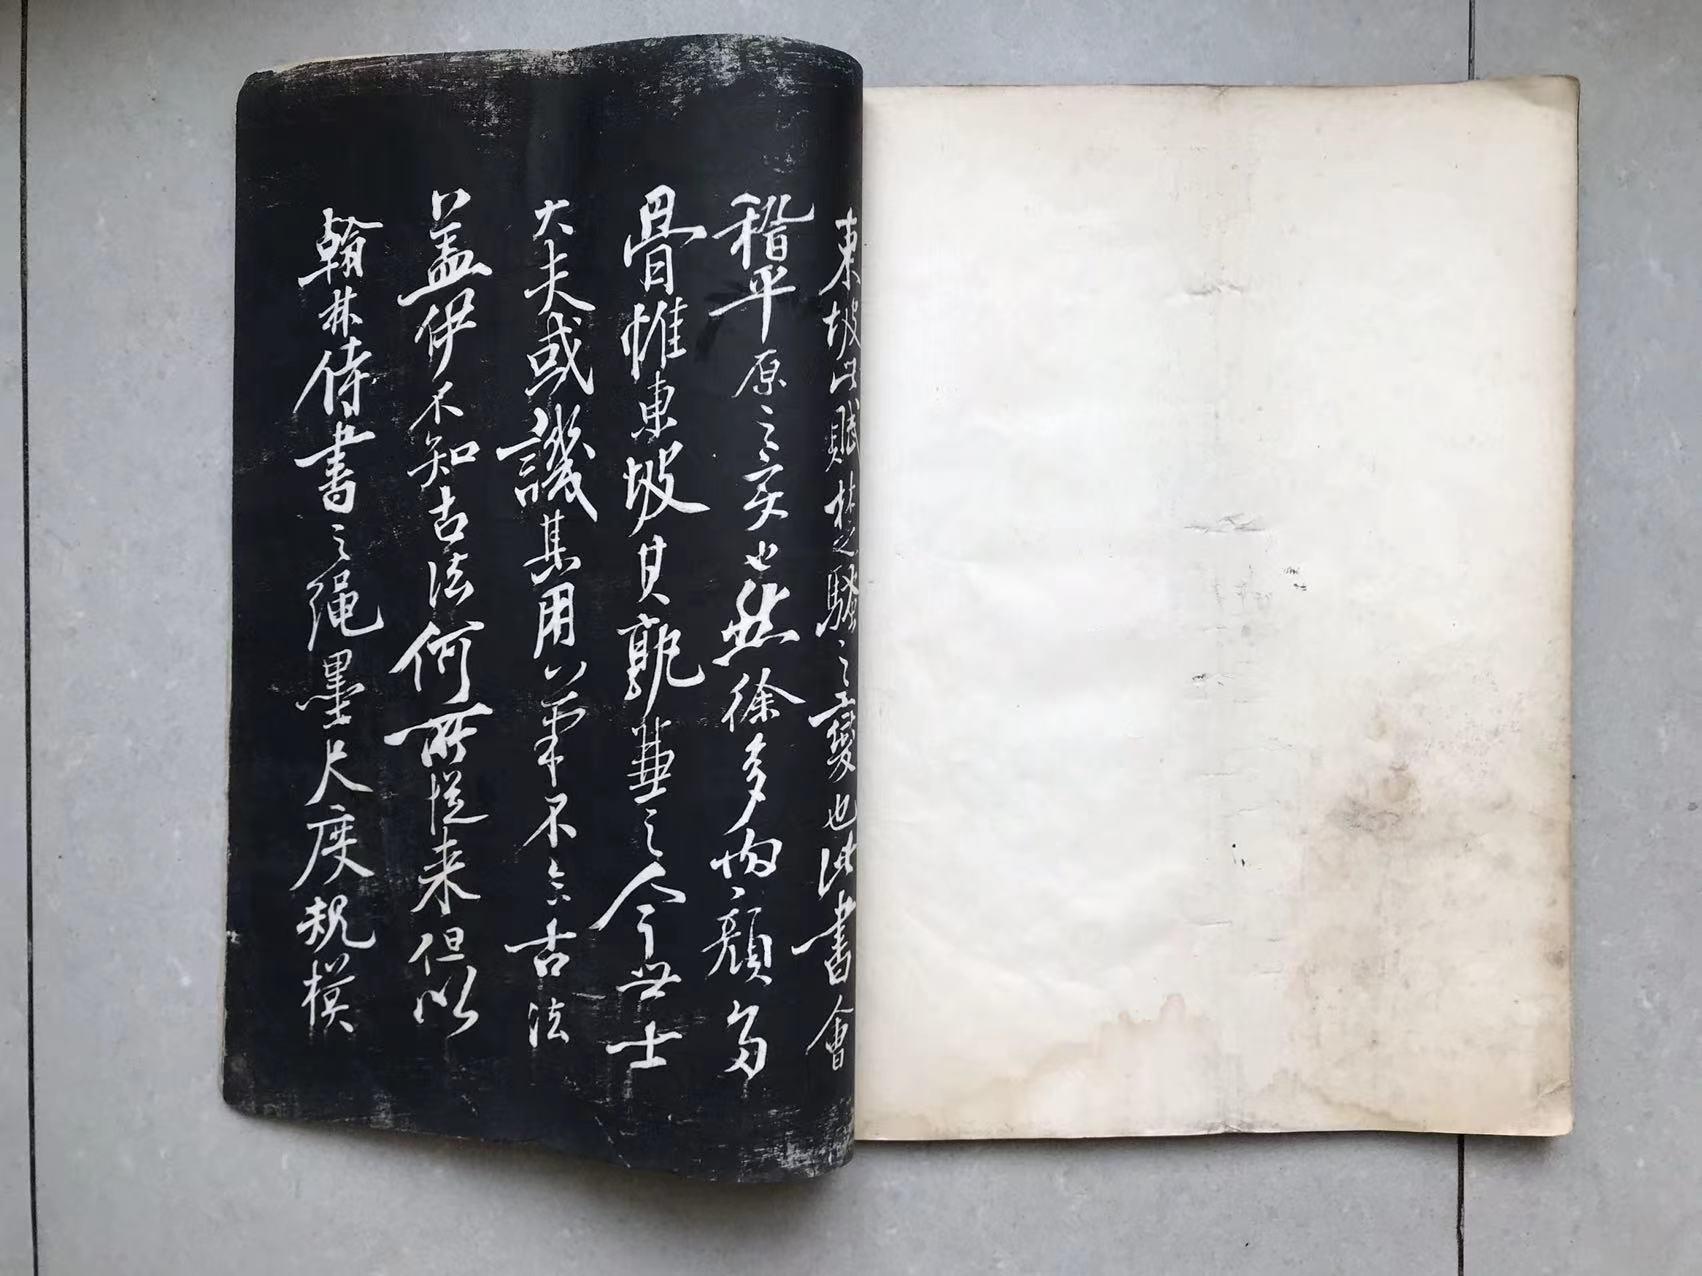 東坡此賦楚之騷之變也此書會
稽平原之变也然徐多肉顔多
骨惟東坡其孰兼之今世士
大夫或譏其用筆不合古法
盖伊不知古法何所從来但以
翰林侍書之繩墨尺度規模